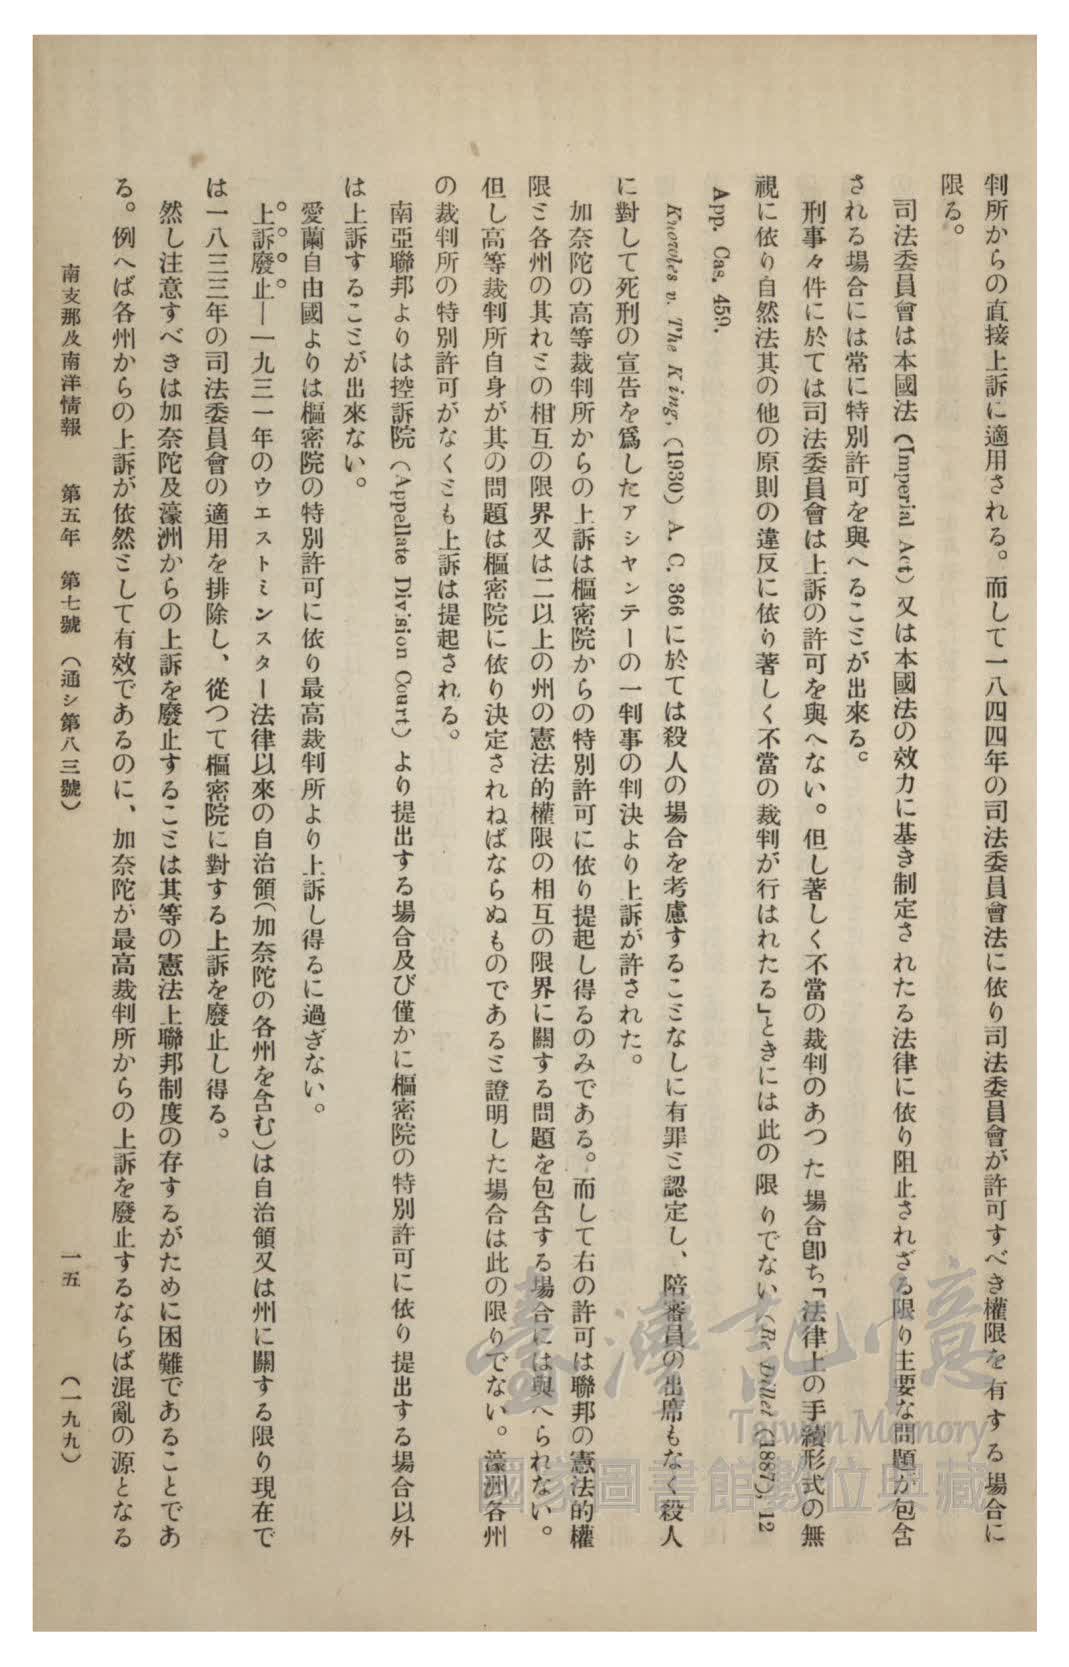 判所からの直接上訴に適用される。而して一八四四年の司法委員會法に依り司法委員會が許可すべき權限を有する場合に
限る。
司法委員會は本國法（Imperial Act）又は本國法の效力に基き制定されたる法律に依り阻止されざる限り主要な問題が包含
される場合には常に特別許可を與へることが出來る。
刑事々件に於ては司法委員會は上訴の許可を與へない。但し著しく不當の裁判のあつた場合卽ち「法律上の手續形式の無
視に依り自然法其の他の原則の違反に依り著しく不當の裁判が行はれたる」ときには此の限りでない（Re Dillet (1887), 12
App. Cas. 459.
Knowles v. The King, (1930) A. C. 366 に於ては殺人の場合を考慮することなしに有罪と認定し、陪審員の出席もなく殺人
に對して死刑の宣告を爲したアシャンテーの一判事の判決より上訴が許された。
加奈陀の高等裁判所からの上訴は樞密院からの特別許可に依り提起し得るのみである。而して右の許可は聯邦の憲法的權
限と各州の其れとの相互の限界又は二以上の州の憲法的權限の相互の限界に關する問題を包含する場合には與へられない。
但し高等裁判所自身が其の問題は樞密院に依り決定されねばならぬものであると證明した場合は此の限りでない。濠洲各州
の裁判所の特別許可がなくとも上訴は提起される。
南亞聯邦よりは控訴院（Appellate Division Court）より提出する場合及び僅かに樞密院の特別許可に依り提出する場合以外
は上訴することが出來ない。
愛蘭自由國よりは樞密院の特別許可に依り最高裁判所より上訴し得るに過ぎない。
上訴廢止―一九三一年のウエストミンスター法律以來の自治領（加奈陀の各州を含む）は自治領又は州に關する限り現在で
は一八三三年の司法委員會の適用を排除し、從つて樞密院に對する上訴を廢止し得る。
然し注意すべきは加奈陀及濠洲からの上訴を廢止することは其等の憲法上聯邦制度の存するがために困難であることであ
る。例へば各州からの上訴が依然として有效であるのに、加奈陀が最高裁判所からの上訴を廢止するならば混亂の源となる
南支那及南洋情報 第五年 第七號 （通シ第八三號） 一五 （一九九）
臺灣記憶
Taiwan Memory
國家圖書館數位典藏